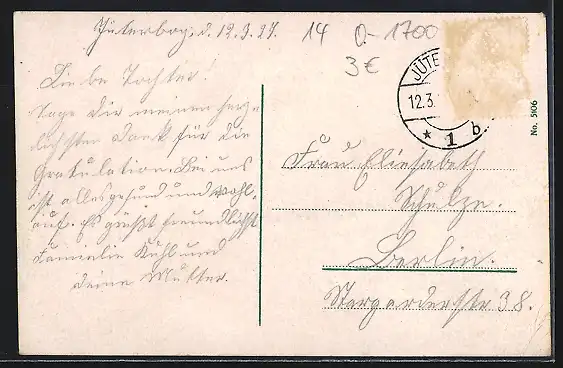 Jüterbog, d. 12.3.27.
14 0-1700
3€
Liebe Tochter!
Sage Dir meinen herz-
lichsten Dank für die
Gratulation. Bei uns
ist alles gesund und wohl-
auf. Es grüßt freundlichst
Familie Kühl und
deine Mutter.
JÜTE
12.3.
* 1 b.
No. 5106
Frau Eliesabeth
Schulze.
Berlin.
Stargarderstr 38.